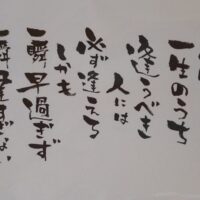 一生のうち
逢うべき
人には
必ず逢える
しかも
一瞬早過ぎず
一瞬遅すぎない